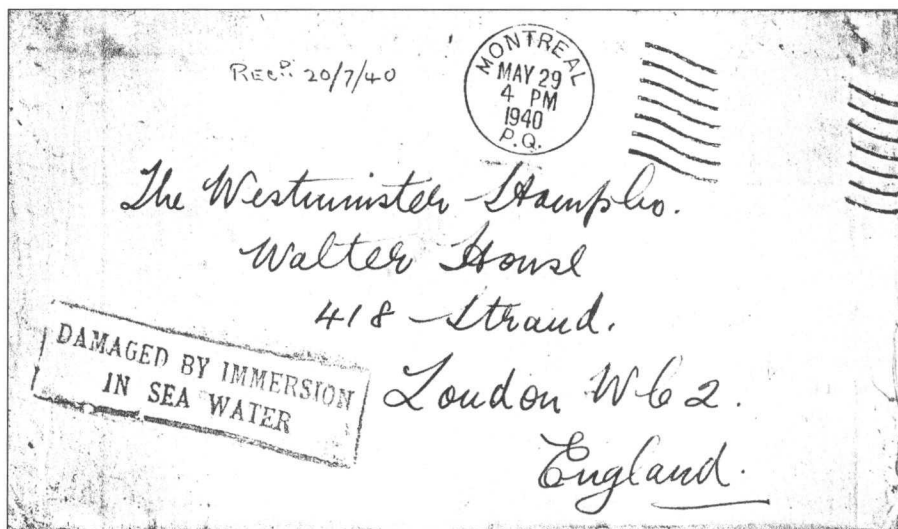 RECD. 20/7/40
MONTREAL
MAY 29
4 PM
1940
P.Q.
The Westminster Stamp Co.
Walter House
418 Strand.
London W C 2.
England.
DAMAGED BY IMMERSION
IN SEA WATER